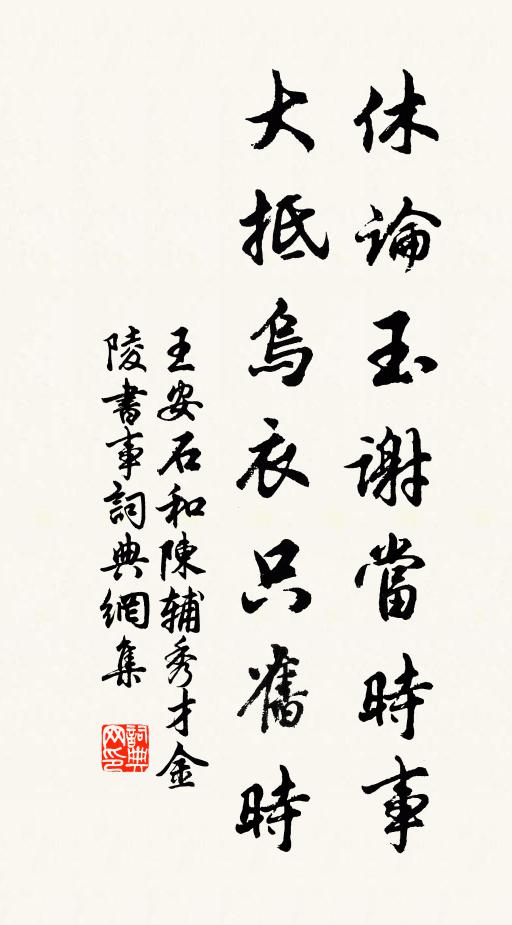 休論玉謝當時事
大抵烏衣只舊時
王安石和陳輔秀才金
陵書事詞典網集
詞典
网印